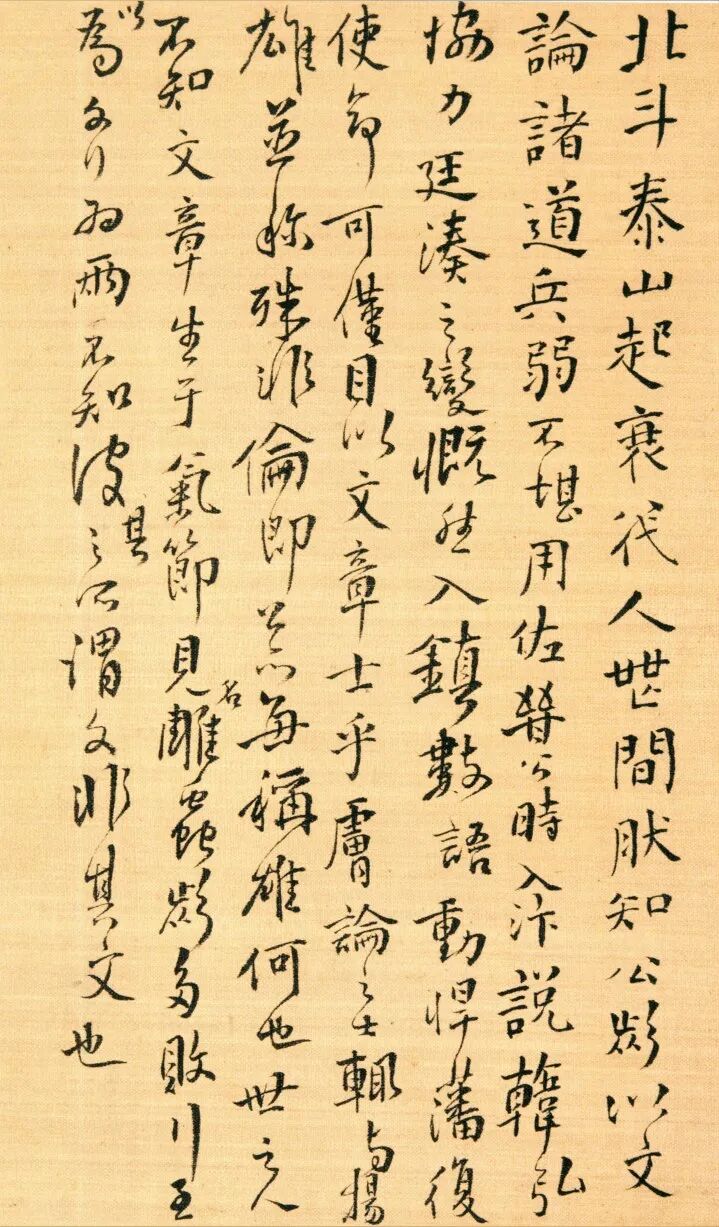 北斗泰山起衰代人世間肰知公類以文
論諸道兵弱不堪用佐晉公時入汴説韓弘
協力廷湊之變慨然入鎮數語動悍藩復
使命可僅目以文章士乎膚論之士輒與揚
雄並称殊非倫即公亦每稱雄何也世之人
不知文章生于氣節見名雕蟲類多敗行至
以為文行為兩不知彼其之所謂文非其文也